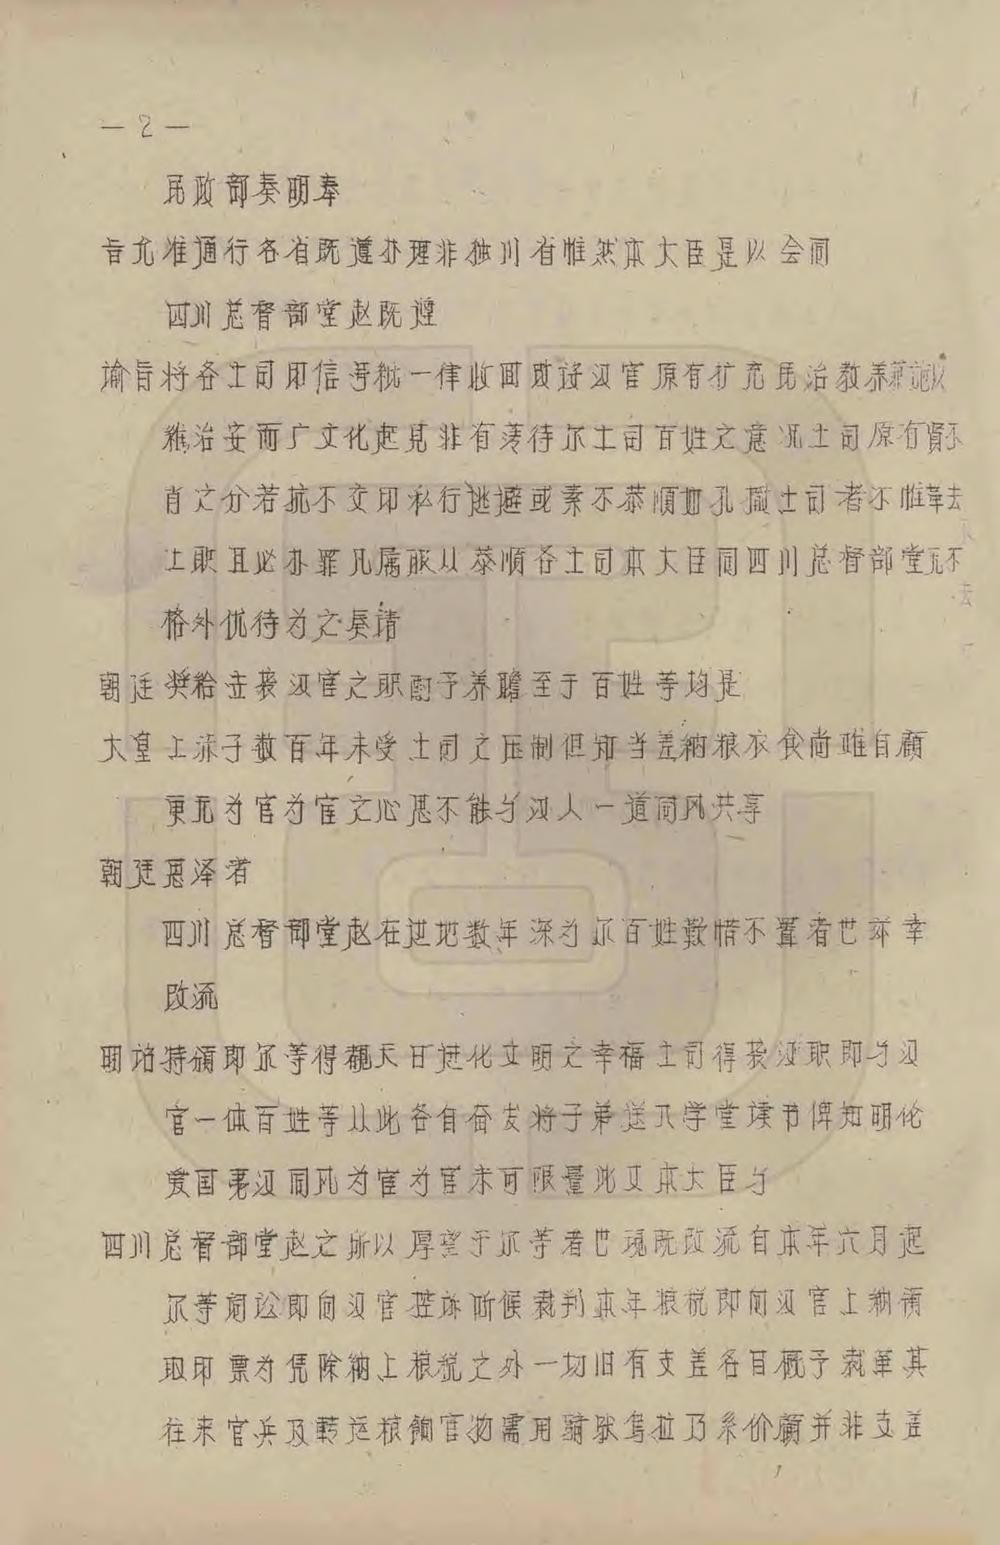 —2—
民政部奏明奉
旨允准通行各省既遵办理非独川省惟然本大臣是以会同
四川总督部堂赵既遵
谕旨将各土司印信号纸一律收回改设汉官原有扩充民治教养兼施以
维治安而广文化起见非有薄待尔土司百姓之意况土司原有贤不
肖之分若抗不交印私行逃避或素不恭顺如孔撒土司者不惟革去
土职且必办罪凡属服从恭顺各土司本大臣同四川总督部堂无不
格外优待为之奏请
朝廷奖给并授汉官之职酌予养赡至于百姓等均是
大皇上赤子数百年来受土司之压制但知当差纳粮衣食尚难自顾
更无为官为宦之心愚不能与汉人一道同风共享
朝廷恩泽者
四川总督部堂赵在边地数年深为尔百姓叹惜不置者也兹幸
改流
明诏特颁即尔等得睹天日进化文明之幸福土司得授汉职即与汉
官一体百姓等从此各自奋发将子弟送入学堂读书俾知明伦
爱国夷汉同风为宦为官未可限量此又本大臣与
四川总督部堂赵之所以厚望于尔等者也现既改流自本年六月起
尔等词讼即向汉官控诉听候裁判本年粮税即向汉官上纳领
取印票为凭除纳上粮税之外一切旧有支差名目概予裁革其
往来官兵及转运粮饷官物需用骑驮乌拉乃系价雇并非支差